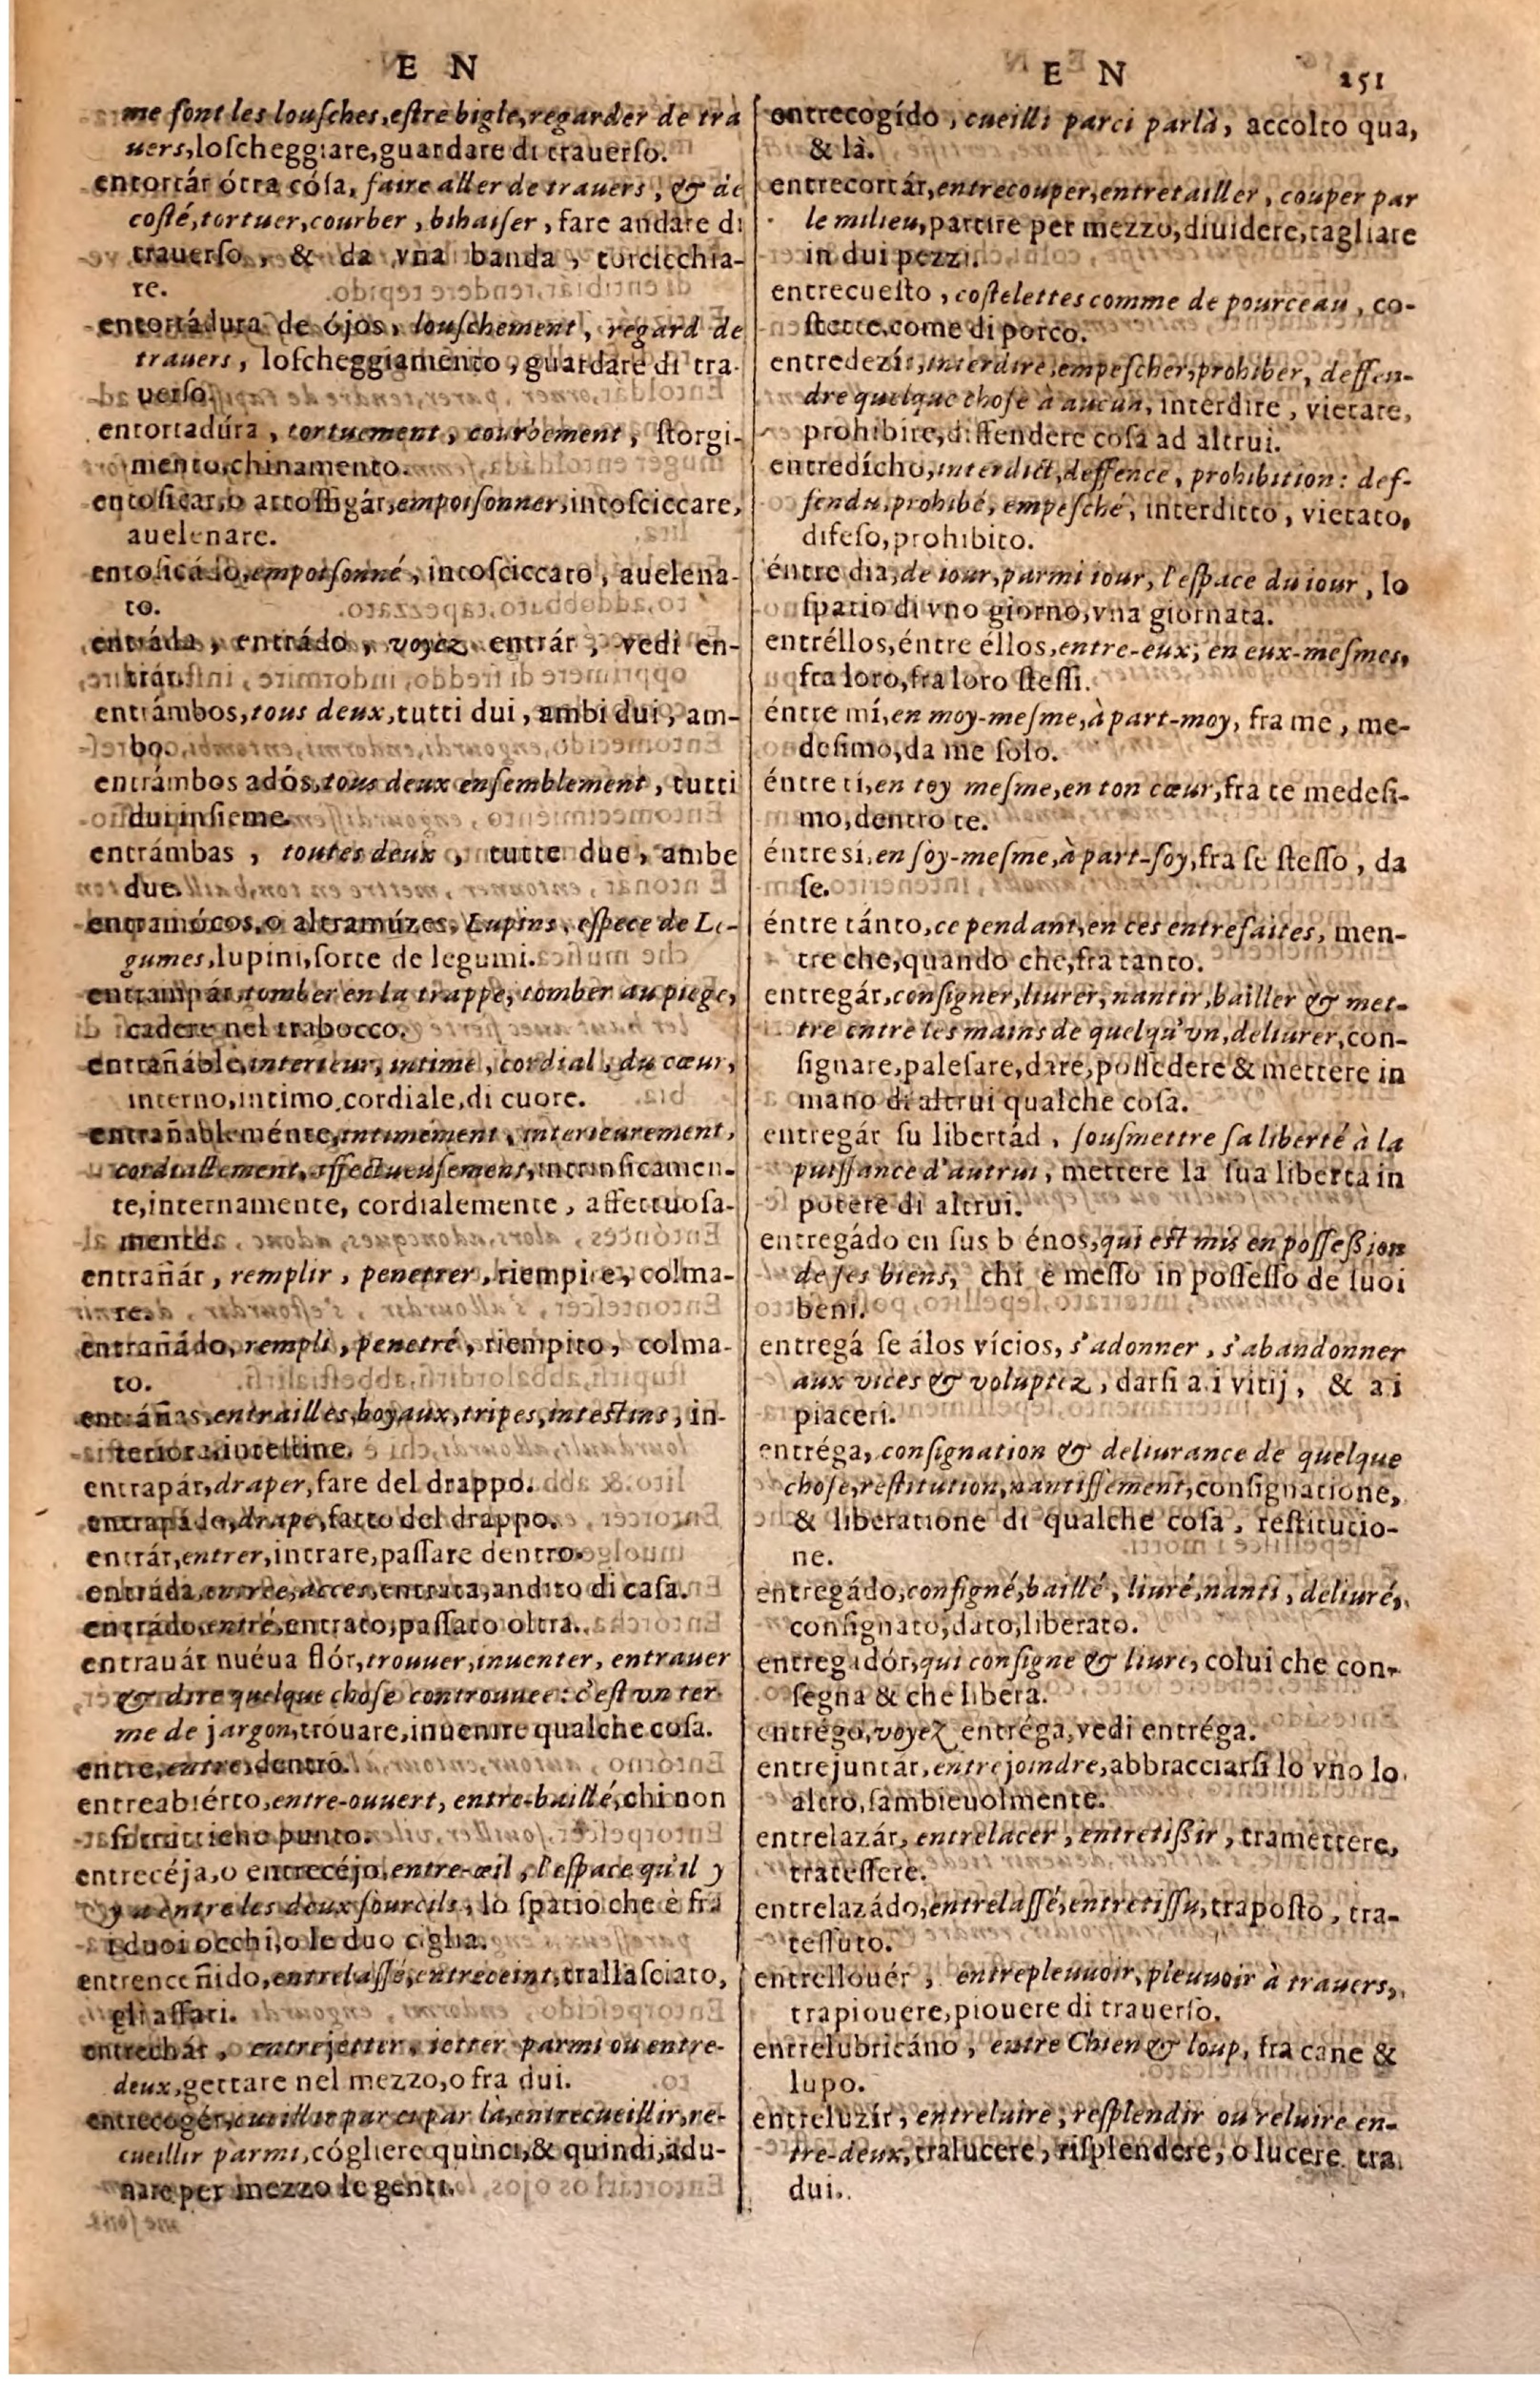 E N
me ſont les louſches, eſtre bigle, regarder de tra
uers, loſcheggiare, guardare di trauerſo.
entortár ótra cóſa, faire aller de trauers, & de
coſté, tortuer, courber, bihaiſer, fare andare di
trauerſo, & da vna banda, torcicchia-
re.
entortádura de ójos, louſchement, regard de
trauers, loſcheggiamento, guardare di tra-
uerſo.
entortadúra, tortuement, courbement, ſtorgi-
mento, chinamento.
entoſicar, o attoſſigár, empoiſonner, intoſciccare,
auelenare.
entoſicádo, empoiſonné, intoſciccato, auelena-
to.
entráda, entrádo, voyez entrár, vedi en-
trár.
entrámbos, tous deux, tutti dui, ambi dui, am-
bo.
entrámbos adós, tous deux enſemblement, tutti
dui inſieme.
entrámbas, toutes deux, tutte due, ambe
due.
entramócos, o altramúzes, Lupins, eſpece de Le-
gumes, lupini, ſorte de legumi.
entrampár, tomber en la trappe, tomber au piege,
cadere nel trabocco.
entrañáble, interieur, intime, cordial, du cœur,
interno, intimo, cordiale, di cuore.
entrañableménte, intimement, interieurement,
cordiallement, affectueuſement, intrinſicamen-
te, internamente, cordialemente, affettuoſa-
mente.
entrañár, remplir, penetrer, riempire, colma-
re.
entrañádo, rempli, penetré, riempito, colma-
to.
entráñas, entrailles, boyaux, tripes, inteſtins, in-
teriora, inteſtine.
entrapár, draper, fare del drappo.
entrapádo, drapé, fatto del drappo.
entrár, entrer, intrare, paſſare dentro.
entráda, entrée, acces, entrata, andito di caſa.
entrádo, entré, entrato, paſſato oltra.
entrauár nuéua flór, trouuer, inuenter, entrauer
& dire quelque choſe controuuee: c'eſt vn ter
me de jargon, trouare, inuenire qualche coſa.
entre, entre, dentro.
entreabiérto, entre-ouuert, entre-baillé, chi non
ſi trattiene punto.
entrecéja, o entrecéjo, entre-œil, l'eſpace qu'il y
y a entre les deux ſourcils, lo ſpatio che è fra
i duoi occhi, o le duo ciglia.
entrenceñido, entrelaſſé, entreceint, trallaſciato,
gli affari.
entrechár, entrejetter, ietter parmi ou entre-
deux, gettare nel mezzo, o fra dui.
entrecogér, cueillir par ci par là, entrecueillir, re-
cueillir parmi, cógliere quinci, & quindi, adu-
nare per mezzo le genti.
E N 251
entrecogído, cueilli parci parlà, accolto qua,
& là.
entrecortár, entrecouper, entretailler, couper par
le milieu, partire per mezzo, diuidere, tagliare
in dui pezzi.
entrecueſto, coſtelettes comme de pourceau, co-
ſtette, come di porco.
entredezír, interdire, empeſcher, prohiber, deffen-
dre quelque choſe à aucun, interdire, vietare,
prohibire, diffendere coſa ad altrui.
entredícho, interdict, deffence, prohibition: def-
fendu, prohibé, empeſché, interditto, vietato,
difeſo, prohibito.
éntre dia, de iour, parmi iour, l'eſpace du iour, lo
ſpatio di vno giorno, vna giornata.
entréllos, éntre éllos, entre-eux, en eux-meſmes,
fra loro, fra loro ſteſſi.
éntre mí, en moy-meſme, à part-moy, fra me, me-
deſimo, da me ſolo.
éntre ti, en toy meſme, en ton cœur, fra te medeſi-
mo, dentro te.
éntre si, en ſoy-meſme, à part-ſoy, fra ſe ſteſſo, da
ſe.
éntre tánto, ce pendant, en ces entrefaites, men-
tre che, quando che, fra tanto.
entregár, conſigner, liurer, nantir, bailler & met-
tre entre les mains de quelqu'vn, deliurer, con-
ſignare, paleſare, dare, poſſedere & mettere in
mano di altrui qualche coſa.
entregár ſu libertád, ſouſmettre ſa liberté à la
puiſſance d'autrui, mettere la ſua liberta in
potere di altrui.
entregádo en ſus b énos, qui eſt mis en poſſeßion
de ſes biens, chi è meſſo in poſſeſſo de ſuoi
beni.
entregá ſe álos vícios, s'adonner, s'abandonner
aux vices & voluptez, darſi a i vitij, & a i
piaceri.
entréga, conſignation & deliurance de quelque
choſe, reſtitution, nantiſſement, conſignatione,
& liberatione di qualche coſa, reſtitutio-
ne.
entregádo, conſigné, baillé, liuré, nanti, deliuré,
conſignato, dato, liberato.
entregadór, qui conſigne & liure, colui che con-
ſegna & che libera.
entrégo, voyez entréga, vedi entréga.
entrejuntar, entrejoindre, abbracciarſi lo vno lo
altro, ſambieuolmente.
entrelazár, entrelacer, entretißir, tramettere,
trateſſere.
entrelazádo, entrelaſſé, entretiſſu, trapoſto, tra-
teſſuto.
entrellouér, entrepleuuoir, pleuuoir à trauers,
trapiouere, piouere di trauerſo.
entrelubricáno, entre Chien & loup, fra cane &
lupo.
entreluzír, entreluire, reſplendir ou reluire en-
tre-deux, tralucere, riſplendere, o lucere tra
dui.